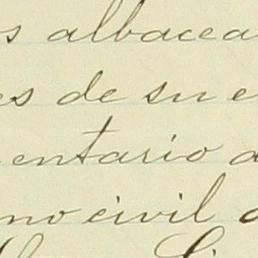 s albacea
es de su e
entario a
no civil d